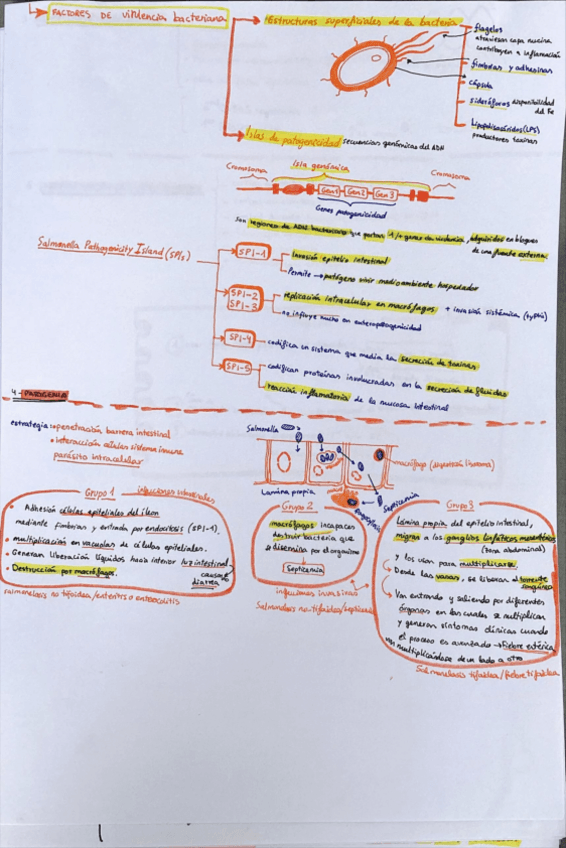 FACTORES DE VIRULENCIA BACTERIANA
Estructuras superficiales de la bacteria
flagelos
atraviesan capa mucina
contribuyen a inflamación
fimbrias y adhesinas
cápsula
sideróforos disponibilidad
del Fe
Lipopolisacáridos (LPS)
productores toxinas
Islas de patogenicidad secuencias genómicas del ADN
Isla genómica
Cromosoma
Cromosoma
Gen 1 Gen 2 Gen 3
Genes patogenicidad
Son regiones de ADN bacteriano que portan 1/+ genes de virulencia, adquiridos en bloques
de una fuente externa.
Salmonella Pathogenicity Island (SPIs)
SPI-1
Invasión epitelio intestinal
Permite → patógeno vivir medioambiente hospedador
SPI-2
SPI-3
replicación intracelular en macrófagos + invasión sistémica (typhi)
no influye mucho en enteropatogenicidad
SPI-4
codifica un sistema que media la secreción de toxinas
SPI-5
codifican proteínas involucradas en la secreción de fluidos
reacción inflamatoria de la mucosa intestinal
4- PATOGENIA
estrategia: penetración barrera intestinal
interacción células sistema inmune
parásito intracelular
Salmonella
macrófago (digestión lisosoma)
Lamina propia
Septicemia
Grupo 1
infecciones intestinales
Adhesión células epiteliales del íleon
mediante fimbrias y entrada por endocitosis (SPI-1).
multiplicación en vacuolas de células epiteliales.
Generan liberación líquidos hacia interior luz intestinal
causando
diarrea
Destrucción por macrófagos.
salmonelosis no tifoidea/enteritis o enterocolitis
Grupo 2
macrófagos incapaces
destruir bacteria que
se disemina por el organismo
Septicemia
infecciones invasivas
Salmonelosis no-tifoidea/septicemia
Grupo 3
Lámina propia del epitelio intestinal,
migra a los ganglios linfáticos mesentéricos
(zona abdominal)
y los usan para multiplicarse
Desde las vacuolas, se liberan al torrente
sanguíneo
Van entrando y saliendo por diferentes
órganos en los cuales se multiplican
y generan síntomas clínicos cuando
el proceso es avanzado → fiebre entérica,
van multiplicándose de un lado a otro
Salmonelosis tifoidea/fiebre tifoidea